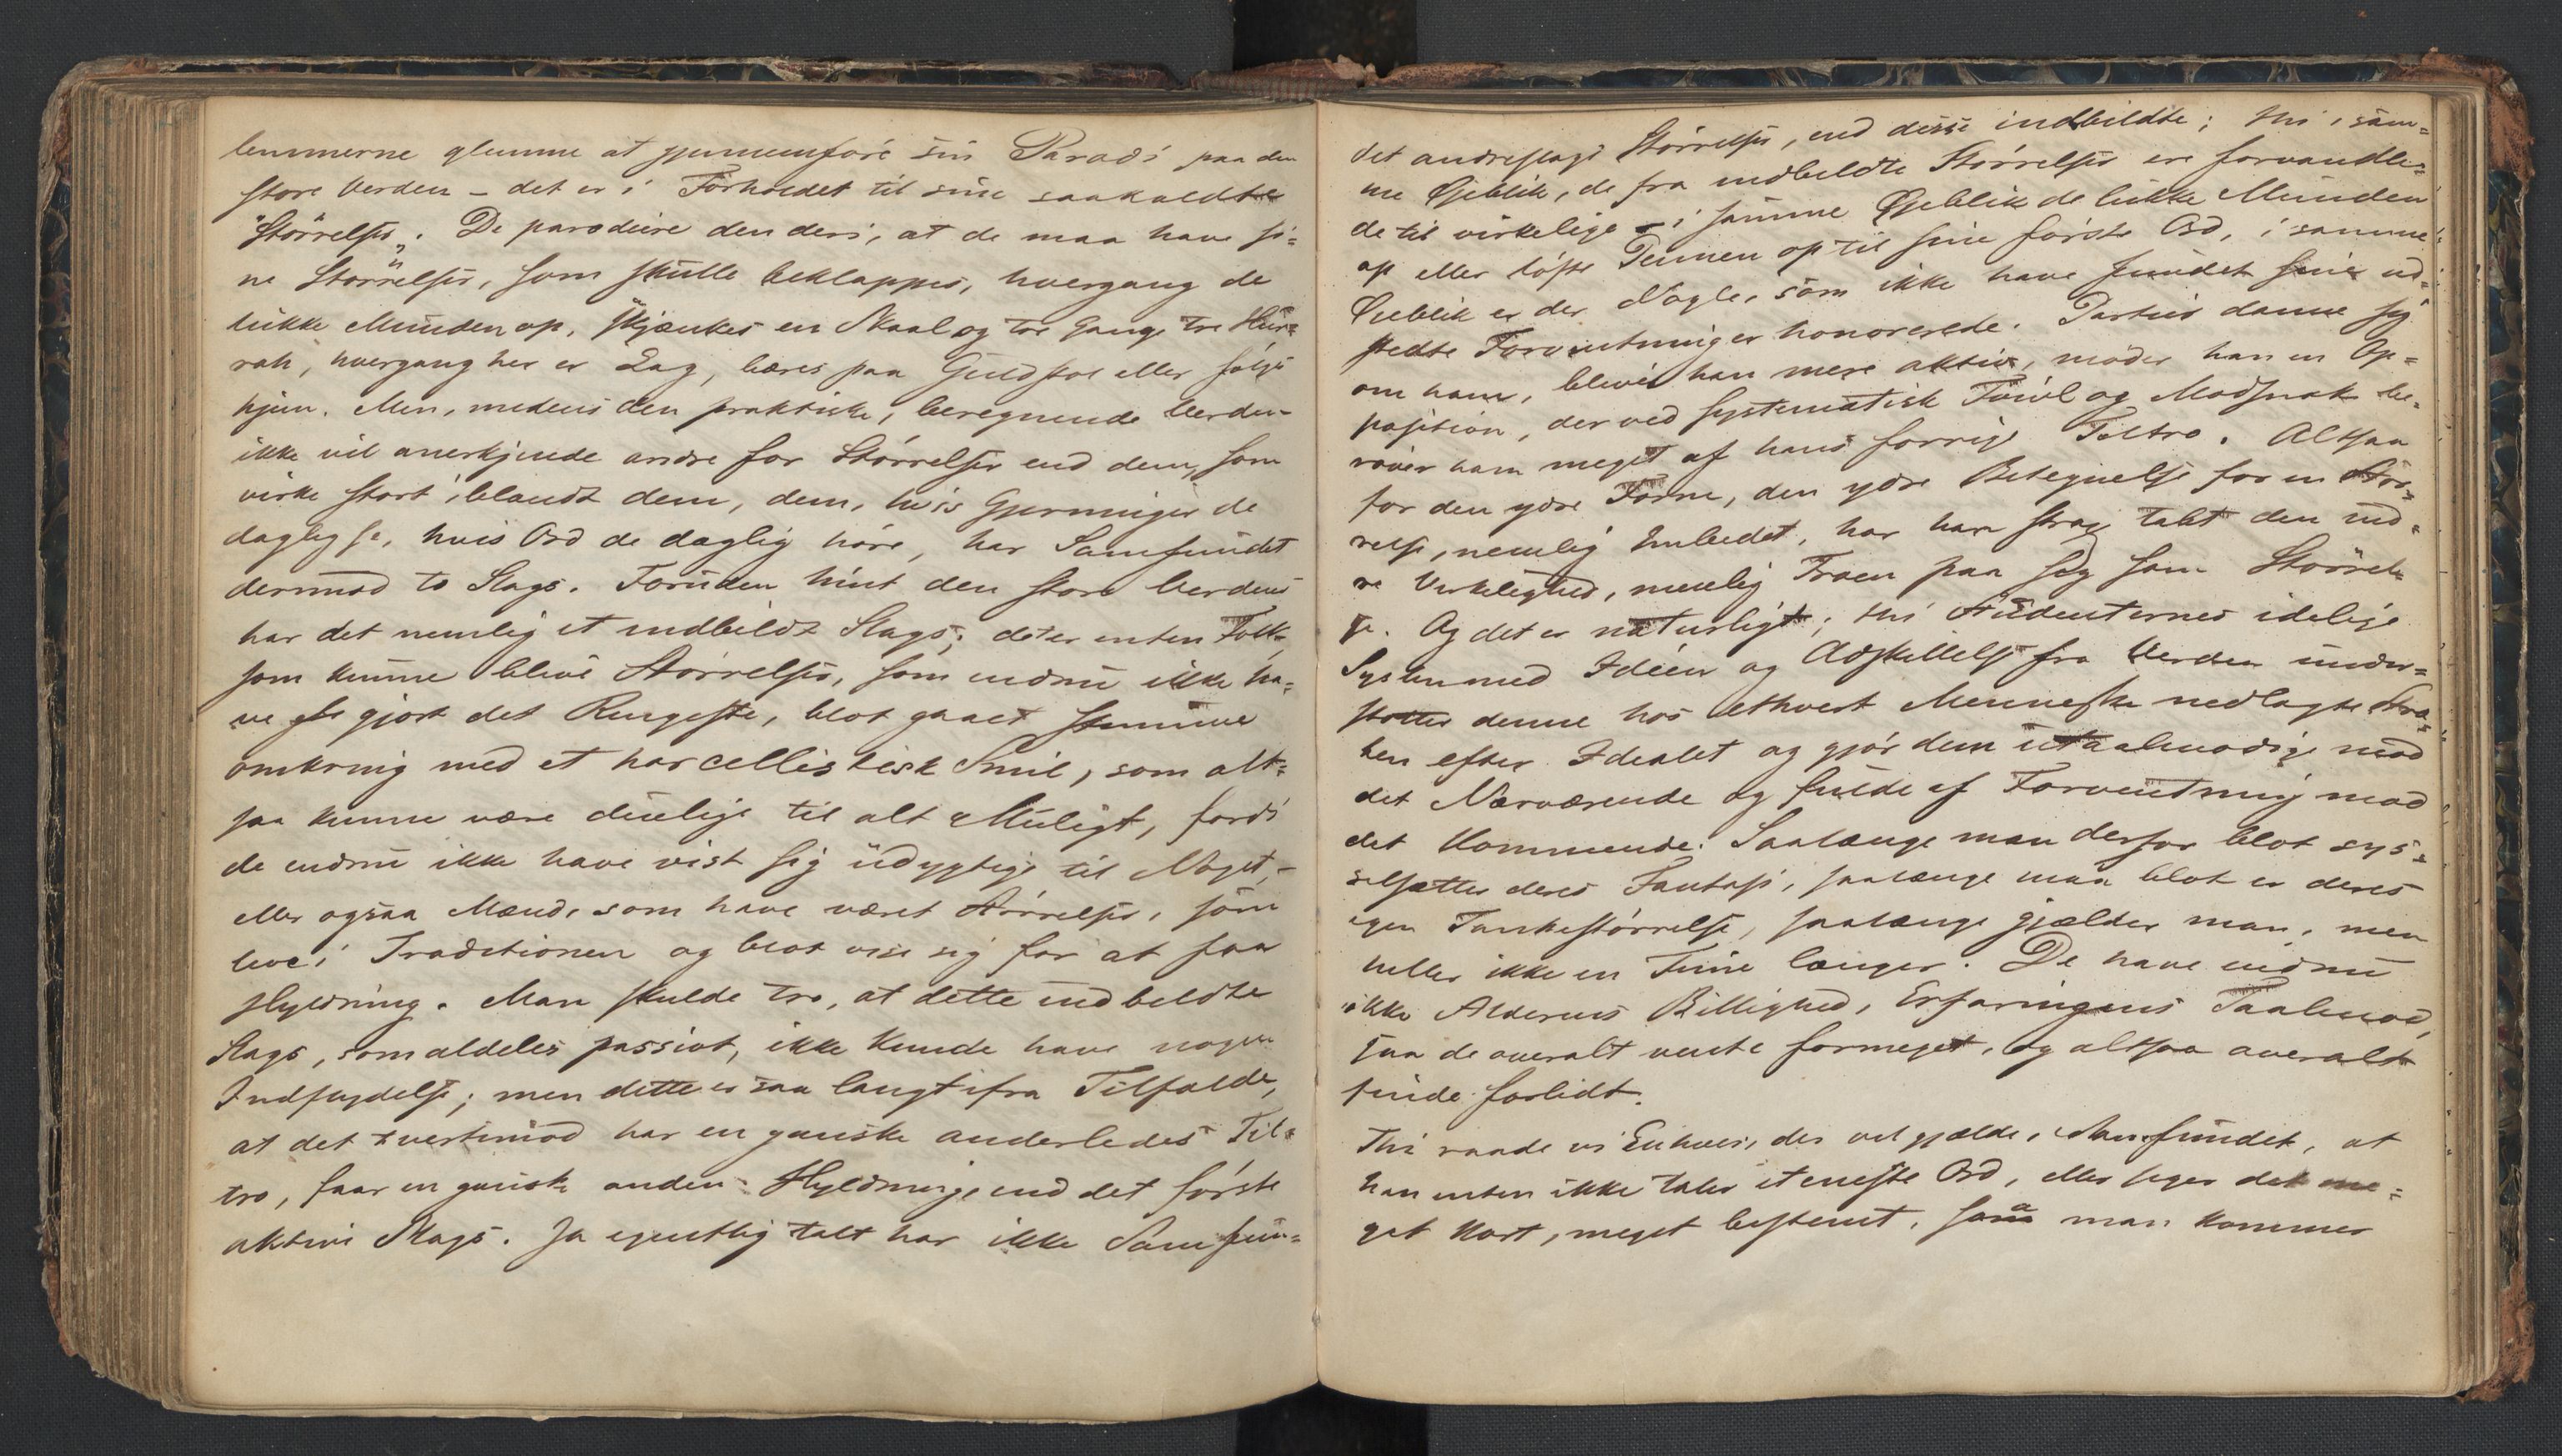 lemmerne glemme at gjennemføre sin Parodi paa den
store Verden – det er i Forholdet til sine saakaldte
"Størrelser". De parodiere den deri, at de maa have si=
ne Størrelser, som skulle beklappes, hvergang de
lukke Munden op, skjænkes en Skaal og tre Gange tre Hur=
rah, hvergang her er Lag, bæres paa Guldstol eller følges
hjem. Men, medens den praktiske, beregnende Verden
ikke vil anerkjende andre for Størrelser end dem, som
virke stort iblandt dem, dem, hvis Gjerninger de
daglig se, hvis Ord de daglig høre, har Samfundet
derimod to Slags. Foruden hint den store Verdens
har det nemlig et indbildt Slags; det er enten Folk,
som kunne blive Størrelser, som endnu ikke ha=
ve gjort det Ringeste, blot gaaet stumme
omkring med et harcellistisk Smil, som alt=
saa kunne være duelige til alt Muligt, fordi
de endnu ikke have vist sig udygtige til Noget, –
eller ogsaa Mænd, som have været Størrelser, som
leve i Traditionen og blot vise sig for at faa
Hyldning. Man skulde tro, at dette indbildte
Slags, som aldeles passivt, ikke kunde have nogen
Indflydelse; men dette er saa langtifra Tilfælde,
at det tvertimod har en ganske anderledes Til=
tro, faar en ganske anden Hyldning end det første
aktive Slags. Ja egentlig talt har ikke Samfun=
det andreslags Størrelser, end disse indbildte; thi i sam=
me Øieblik, de fra indbildte Størrelser ere forvandle=
de til virkelige – i samme Øjeblik de lukke Munden
op eller løfte Pennen op til sine første Ord, i samme
Øieblik er der Nogle, som ikke have fundet sine ud=
stedte Forventninger honorerede. Partier danne sig
om ham, bliver han mere aktiv, møder han en Op=
position, der ved systematisk Tvivl og Modsnak be=
røver ham meget af hans forrige Tiltro. Altsaa
for den ydre Form, den ydre Betegnelse for en Stør=
relse, nemlig Embedet, har han strax tabt den ind=
re Virkelighed, nemlig Troen paa sig som Størrel=
se. Og det er naturligt; thi Studenternes idelige
Syslen med Idéen og Adskillelse fra Verden under=
støtter denne hos ethvert Menneske nedlagte Stræ=
ben efter Idealet og gjør dem utaalmodige mod
det Nærværende og fulde af Forventning mod
det Kommende. Saalænge man derfor blot sys=
selsætter deres Fantasi, saalænge man blot er deres
egen Tankestørrelse, saalænge gjælder man, men
heller ikke en Time længer. De have endnu
ikke Alderens Billighed, Erfaringens Taalmod,
saa de overalt vente formeget, og altsaa overalt
finde forlidt.
Thi raade vi Enhver, der vil gjælde i Samfundet, at
han enten ikke taler et eneste Ord, eller siger det me=
get kort, meget bestemt, saa man kommer